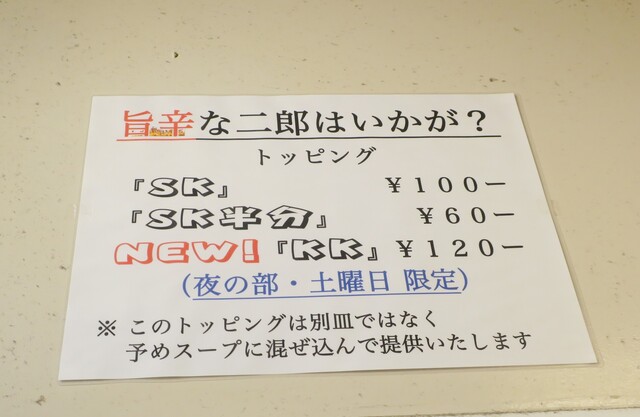 旨辛な二郎はいかが？
トッピング
『SK』 ￥１００ー
『SK半分』 ￥６０ー
NEW!『KK』￥１２０ー
(夜の部・土曜日 限定)
※ このトッピングは別皿ではなく
予めスープに混ぜ込んで提供いたします